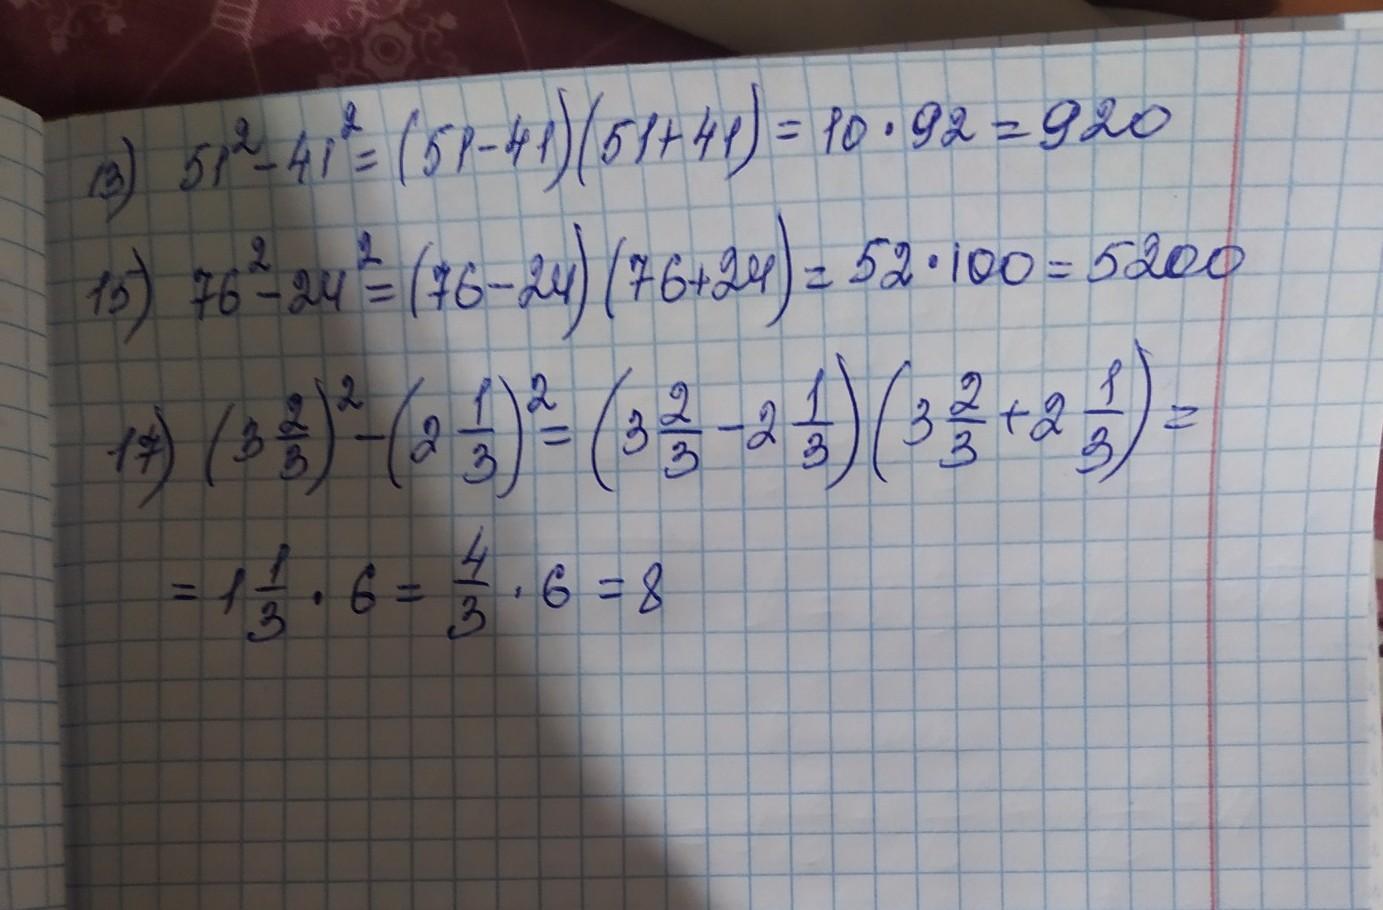 13) 51² - 41² = (51 - 41)(51 + 41) = 10 · 92 = 920
15) 76² - 24² = (76 - 24)(76 + 24) = 52 · 100 = 5200
17) (3 2/3)² - (2 1/3)² = (3 2/3 - 2 1/3)(3 2/3 + 2 1/3) =
= 1 1/3 · 6 = 4/3 · 6 = 8